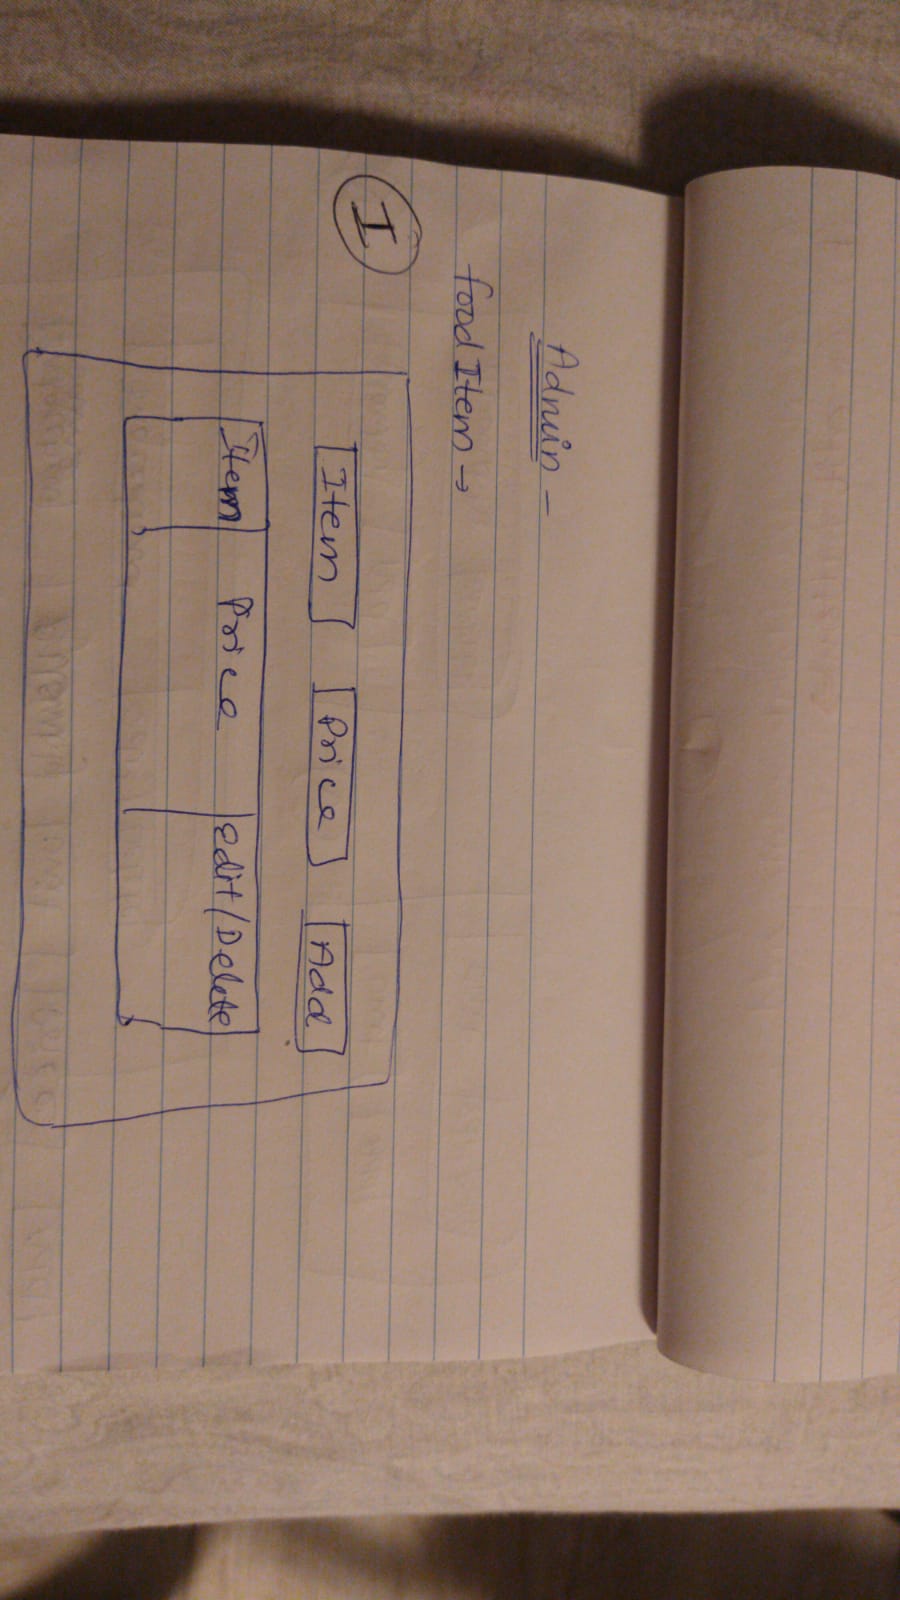 Admin -
food Item →
I
Item Price Add
Item Price edit/Delete